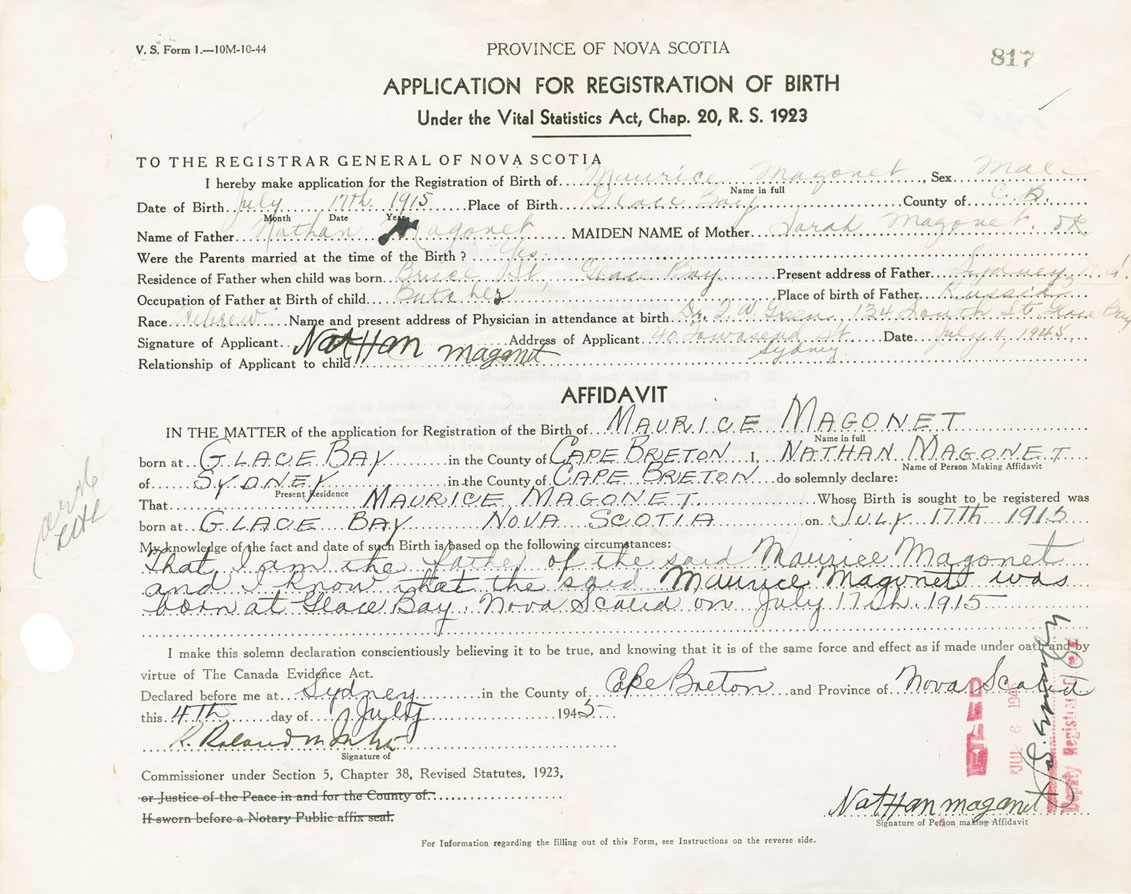 V. S. Form 1.—10M-10-44
PROVINCE OF NOVA SCOTIA
817
APPLICATION FOR REGISTRATION OF BIRTH
Under the Vital Statistics Act, Chap. 20, R. S. 1923
TO THE REGISTRAR GENERAL OF NOVA SCOTIA
I hereby make application for the Registration of Birth of Maurice Magonet Sex Male
Name in full
Date of Birth July 17th 1915 Place of Birth Glace Bay County of C. B.
Month Date Year
Name of Father Nathan Magonet MAIDEN NAME of Mother Sarah Magonet
Were the Parents married at the time of the Birth? Yes
Residence of Father when child was born Bruce St, Glace Bay Present address of Father Sydney
Occupation of Father at Birth of child Butcher Place of birth of Father Russia
Race Hebrew Name and present address of Physician in attendance at birth Dr. 134 South St. Glace Bay
Signature of Applicant Nathan magonet Address of Applicant 40 Townsend St Date July 4, 1945
Sydney
Relationship of Applicant to child
AFFIDAVIT
IN THE MATTER of the application for Registration of the Birth of MAURICE MAGONET
Name in full
born at GLACE BAY in the County of CAPE BRETON I, NATHAN MAGONET
Name of Person Making Affidavit
of SYDNEY in the County of CAPE BRETON do solemnly declare:
Present Residence
That MAURICE MAGONET Whose Birth is sought to be registered was
born at GLACE BAY NOVA SCOTIA on JULY 17TH 1915
My knowledge of the fact and date of such Birth is based on the following circumstances:
That I am the father of the said Maurice Magonet
and I know that the said Maurice Magonet was
born at Glace Bay, Nova Scotia on July 17th. 1915
I make this solemn declaration conscientiously believing it to be true, and knowing that it is of the same force and effect as if made under oath and by
virtue of The Canada Evidence Act.
Declared before me at Sydney in the County of Cape Breton and Province of Nova Scotia
this 4TH day of July 1945
Signature of
Commissioner under Section 5, Chapter 38, Revised Statutes, 1923,
or Justice of the Peace in and for the County of
If sworn before a Notary Public affix seal.
FILED
JUL 6 194
Deputy Registrar
Nathan magonet
Signature of Person making Affidavit
For Information regarding the filling out of this Form, see Instructions on the reverse side.